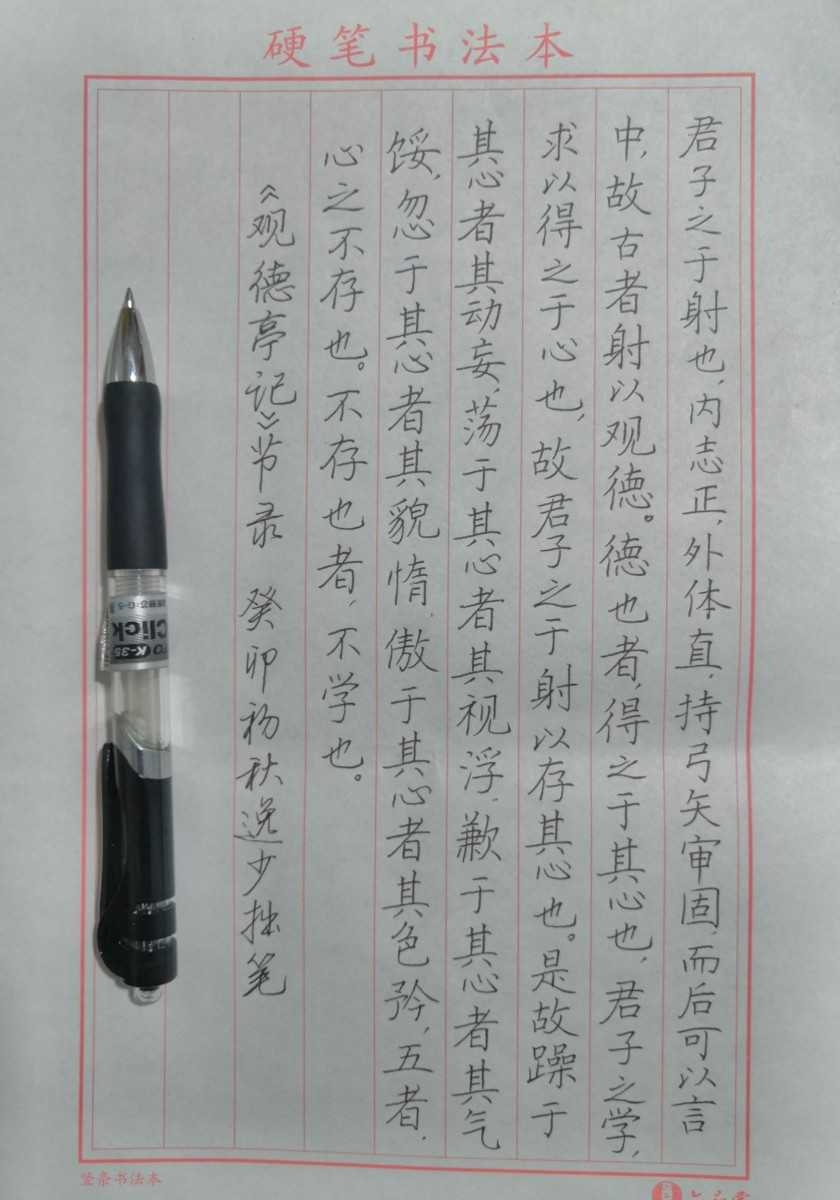 硬笔书法本
君子之于射也,内志正,外体直,持弓矢审固,而后可以言
中,故古者射以观德。德也者,得之于其心也,君子之学,
求以得之于心也,故君子之于射以存其心也。是故躁于
其心者其动妄,荡于其心者其视浮,歉于其心者其气
馁,忽于其心者其貌惰,傲于其心者其色矜,五者,
心之不存也。不存也者,不学也。
《观德亭记》节录 癸卯初秋逸少拙笔
Click
K-35
竖条书法本